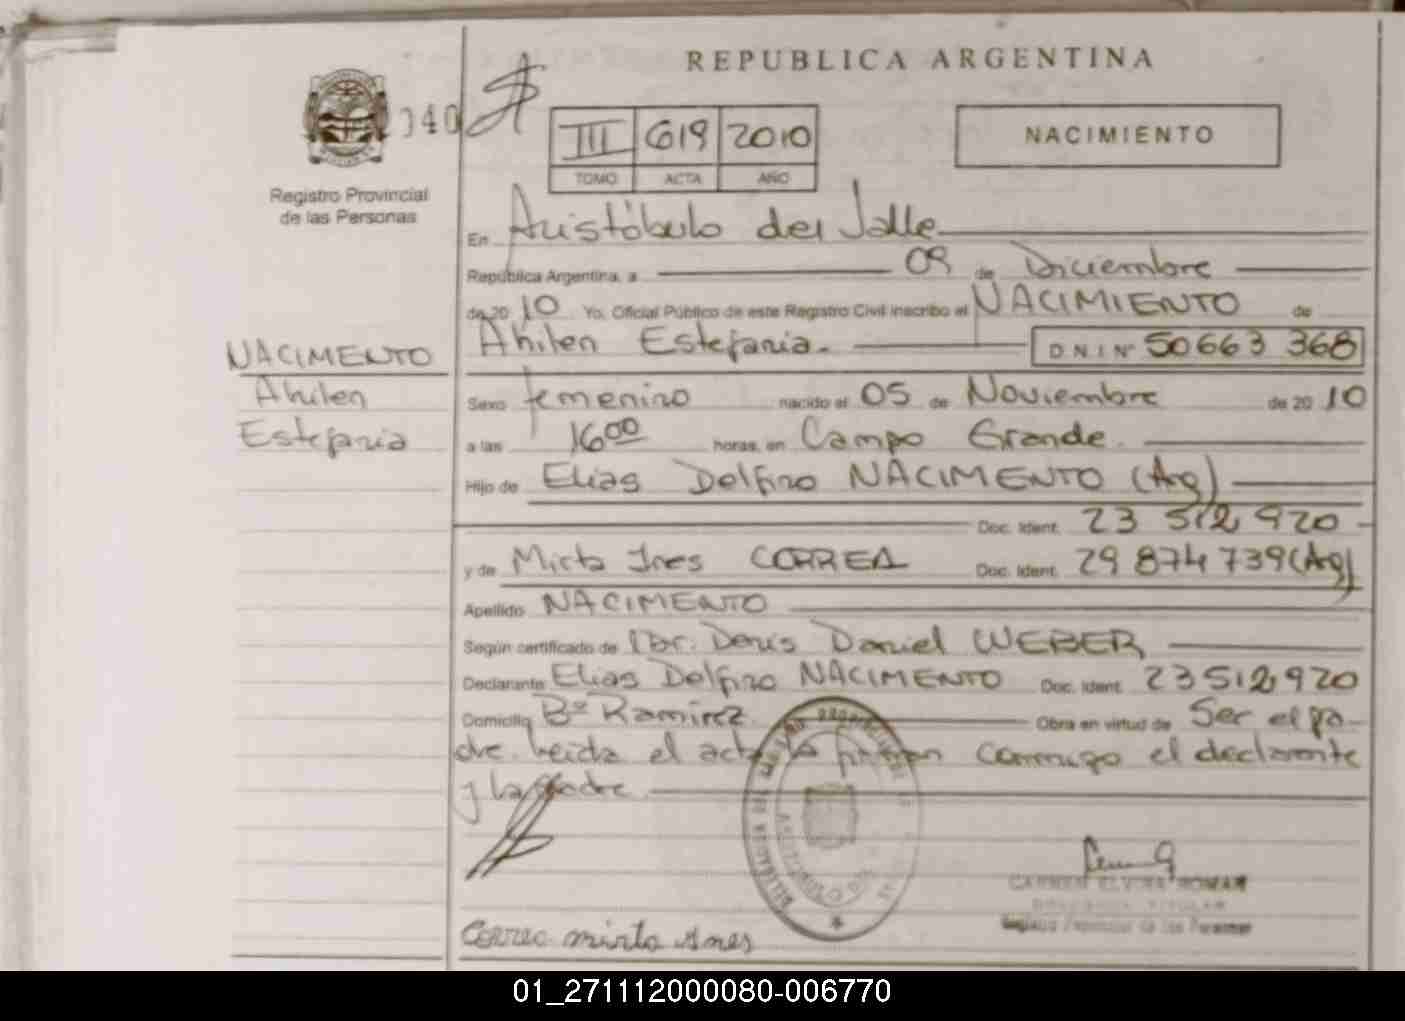 REPUBLICA ARGENTINA
040
III 619 2010
TOMO ACTA AÑO
NACIMIENTO
Registro Provincial
de las Personas
En Aristóbulo del Valle
República Argentina, a 09 de Diciembre
de 20 10 Yo, Oficial Público de este Registro Civil inscribo el NACIMIENTO de
Ahilen Estefania. D N I Nº 50663 368
NACIMENTO
Ahilen
Estefania
Sexo femenino nacido el 05 de Noviembre de 20 10
a las 16 00 horas, en Campo Grande.
Hijo de Elias Delfino NACIMENTO (Arg)
Doc. Ident. 23 512 920
y de Mirta Ines CORREA Doc. Ident. 29 874 739 (Arg)
Apellido NACIMENTO
Según certificado de Dr. Denis Daniel WEBER
Declarante Elias Delfino NACIMENTO Doc. Ident. 23 512 920
Domicilio Bº Ramirez Obra en virtud de Ser el pa-
dre. Leida el acta la firman conmigo el declarante
y la madre.
CARMEN ELVIRA ROMAN
TITULAR
Registro Provincial de las Personas
Correa mirta ines
01_271112000080-006770